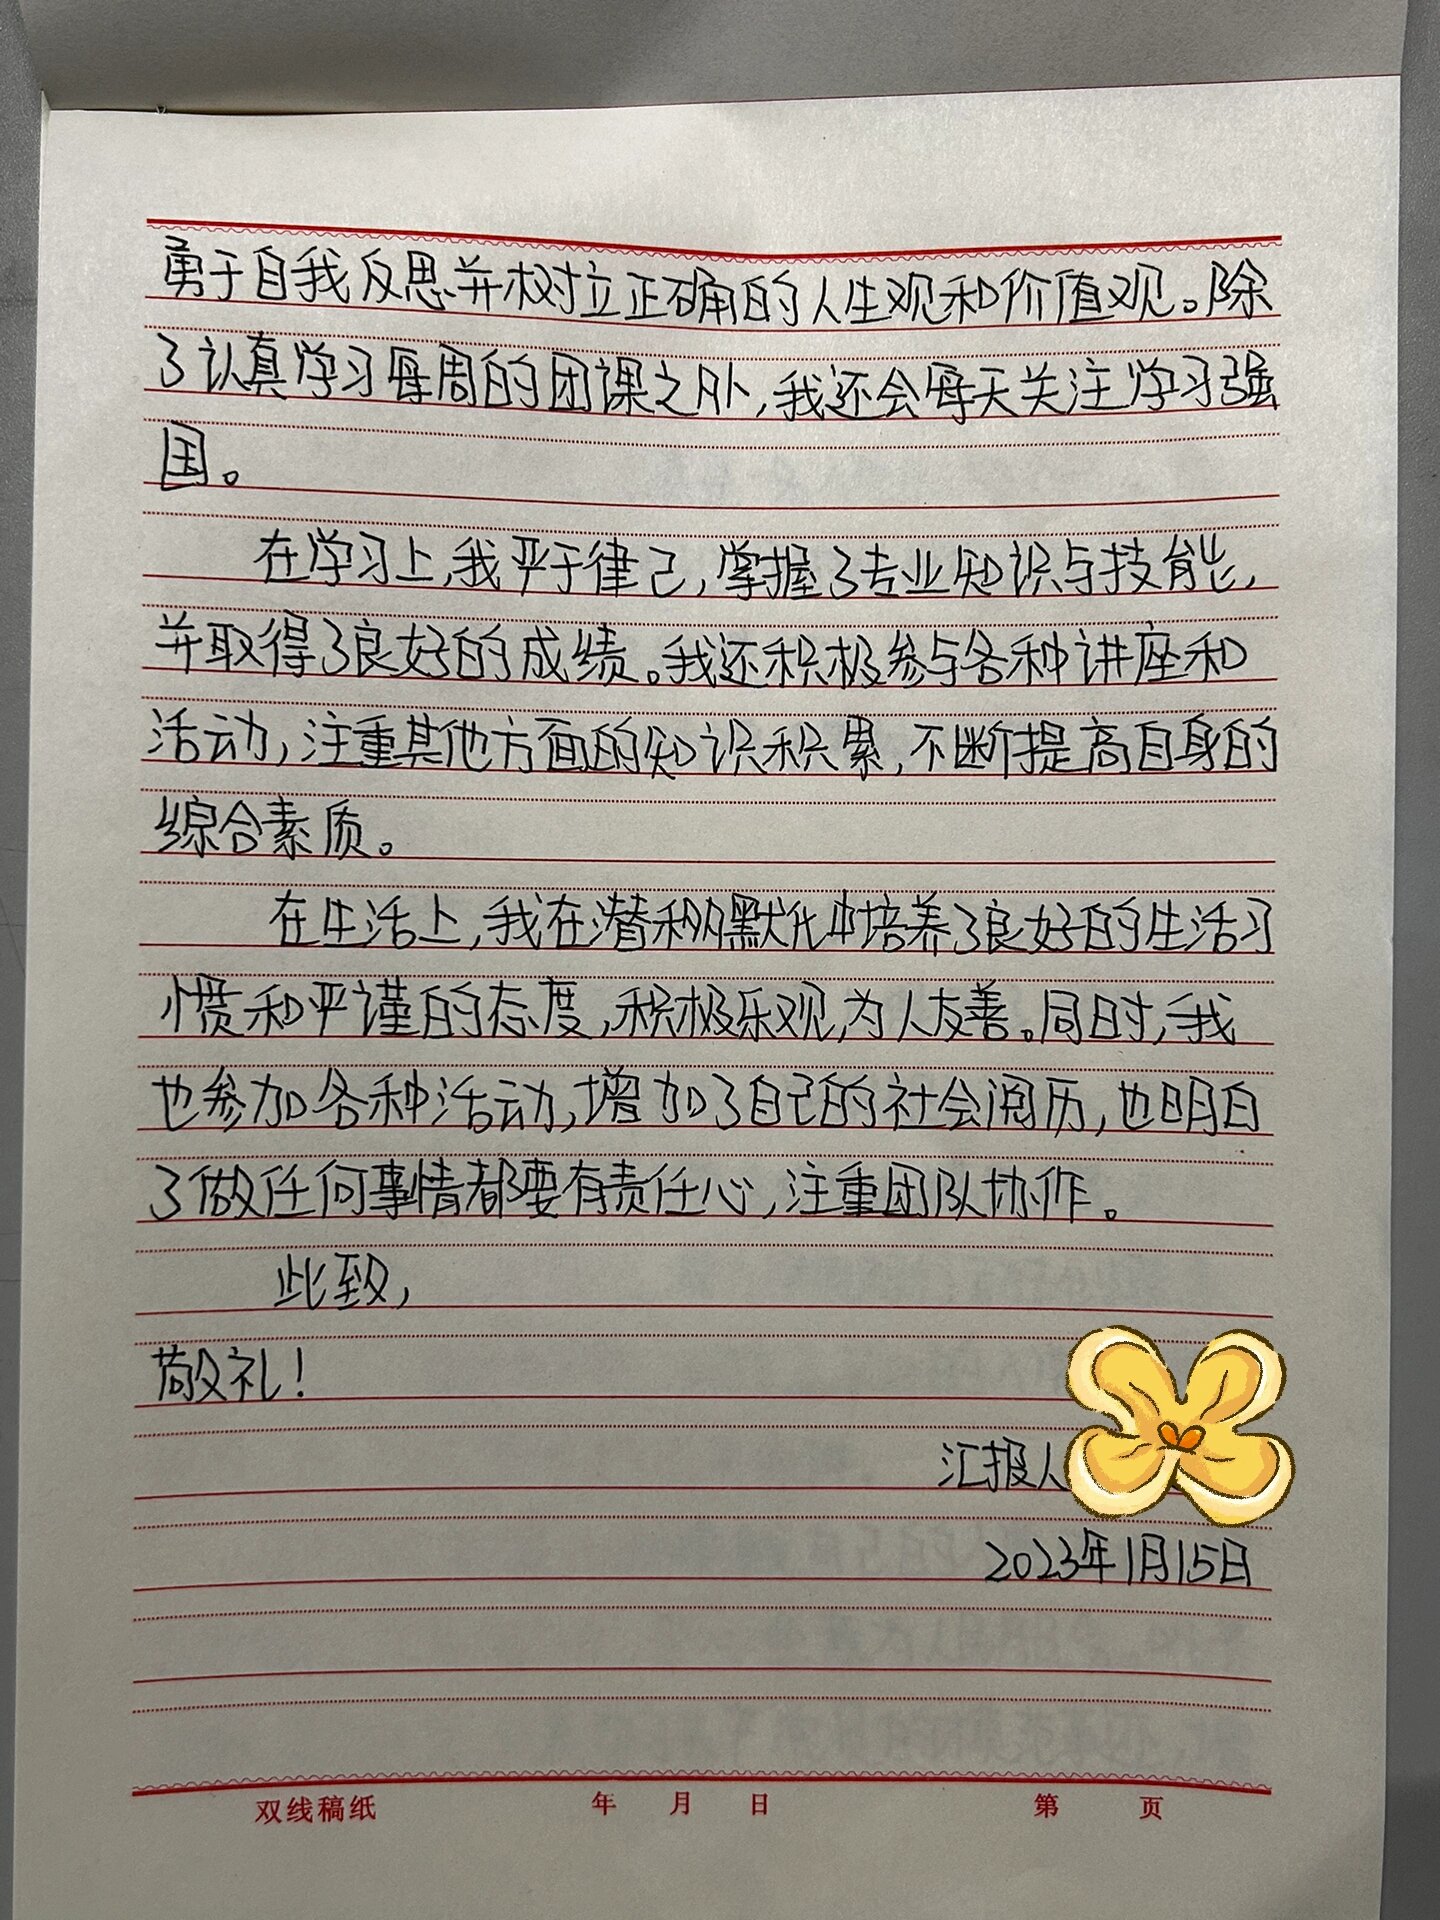 勇于自我反思并树立正确的人生观和价值观。除
了认真学习每周的团课之外，我还会每天关注学习强
国。
在学习上，我严于律己，掌握了专业知识与技能，
并取得了良好的成绩。我还积极参与各种讲座和
活动，注重其他方面的知识积累，不断提高自身的
综合素质。
在生活上，我在潜移默化中培养了良好的生活习
惯和严谨的态度，积极乐观，为人友善。同时，我
也参加各种活动，增加了自己的社会阅历，也明白
了做任何事情都要有责任心，注重团队协作。
此致，
敬礼！
汇报人
2023年1月15日
双线稿纸 年 月 日 第 页